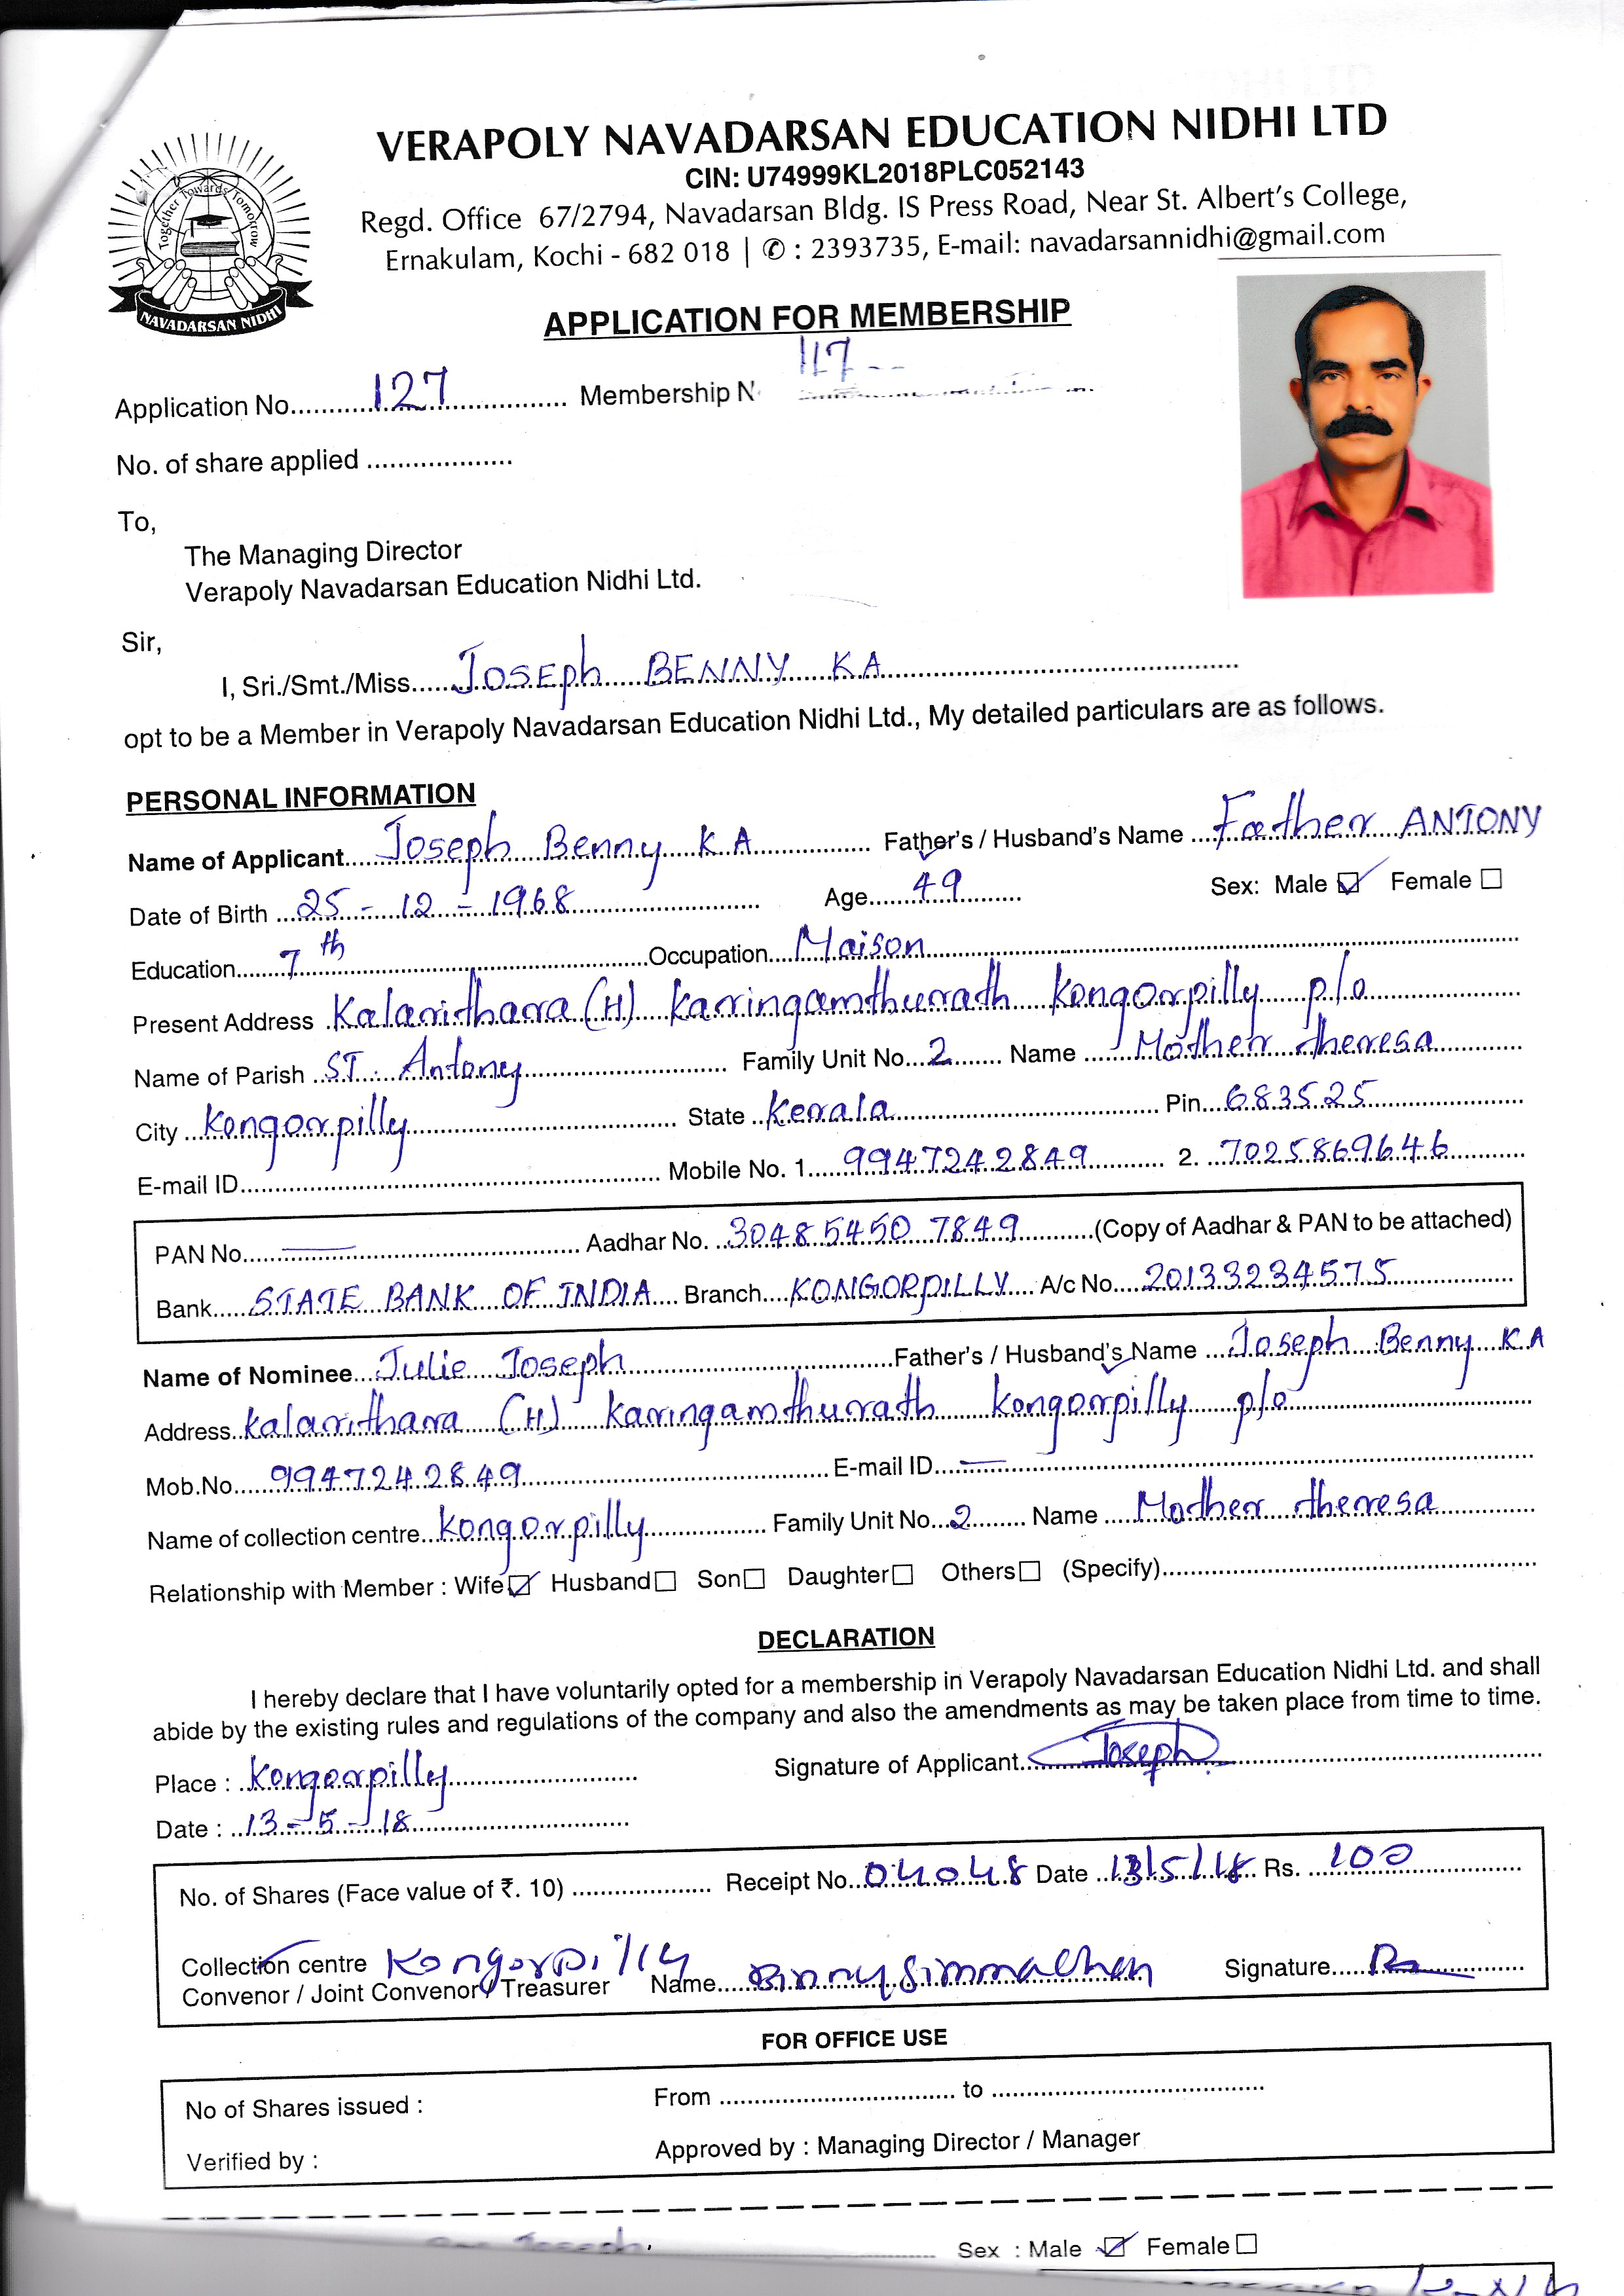 VERAPOLY NAVADARSAN EDUCATION NIDHI LTD
CIN: U74999KL2018PLC052143
Regd. Office 67/2794, Navadarsan Bldg. IS Press Road, Near St. Albert's College,
Ernakulam, Kochi - 682 018 | ✆ : 2393735, E-mail: navadarsannidhi@gmail.com
Together Towards Tomorrow
NAVADARSAN NIDHI
APPLICATION FOR MEMBERSHIP
Application No. 127 Membership N 117
No. of share applied
To,
The Managing Director
Verapoly Navadarsan Education Nidhi Ltd.
Sir,
I, Sri./Smt./Miss. JOSEPh BENNY KA
opt to be a Member in Verapoly Navadarsan Education Nidhi Ltd., My detailed particulars are as follows.
PERSONAL INFORMATION
Name of Applicant Joseph Benny K A Father's / Husband's Name Father ANTONY
Date of Birth 25 - 12 - 1968 Age 49 Sex: Male ☑ Female ☐
Education 7th Occupation Maison
Present Address Kalarithara (H) Karingamthurath Kongorpilly p/o
Name of Parish ST. Antony Family Unit No. 2 Name Mother theresa
City Kongorpilly State Kerala Pin 683525
E-mail ID Mobile No. 1 9947242849 2. 7025869646
PAN No. — Aadhar No. 3048 5450 7849 (Copy of Aadhar & PAN to be attached)
Bank STATE BANK OF INDIA Branch KONGORPILLY A/c No. 20133234575
Name of Nominee Julie Joseph Father's / Husband's Name Joseph Benny K A
Address Kalarithara (H) Karingamthurath Kongorpilly p/o
Mob.No. 9947242849 E-mail ID —
Name of collection centre Kongorpilly Family Unit No. 2 Name Mother theresa
Relationship with Member : Wife ☑ Husband ☐ Son ☐ Daughter ☐ Others ☐ (Specify)
DECLARATION
I hereby declare that I have voluntarily opted for a membership in Verapoly Navadarsan Education Nidhi Ltd. and shall
abide by the existing rules and regulations of the company and also the amendments as may be taken place from time to time.
Place : Kongorpilly Signature of Applicant Joseph
Date : 13 - 5 - 18
No. of Shares (Face value of ₹. 10) Receipt No. 04048 Date 13/5/18 Rs. 100
Collection centre Kongorpilly
Convenor / Joint Convenor / Treasurer Name Binny Simmachen Signature
FOR OFFICE USE
No of Shares issued : From to
Verified by : Approved by : Managing Director / Manager
Joseph Sex : Male ☑ Female ☐